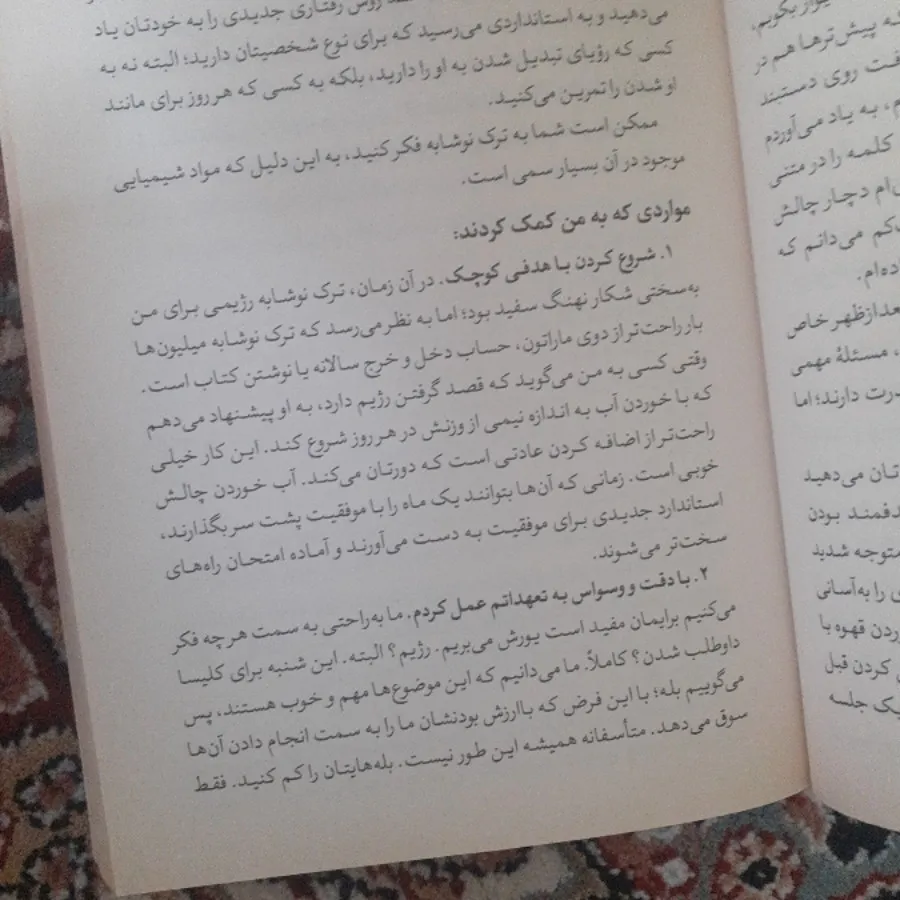 روش رفتاری جدیدی را به خودتان یاد
می‌دهید و به استانداردی می‌رسید که برای نوع شخصیتان دارید؛ البته نه به
کسی که رؤیای تبدیل شدن به او را دارید، بلکه به کسی که هر روز برای مانند
او شدن را تمرین می‌کنید.
ممکن است شما به ترک نوشابه فکر کنید، به این دلیل که مواد شیمیایی
موجود در آن بسیار سمی است.
مواردی که به من کمک کردند:
۱. شروع کردن با هدفی کوچک. در آن زمان، ترک نوشابه رژیمی برای من
به‌سختی شکار نهنگ سفید بود؛ اما به نظر می‌رسد که ترک نوشابه میلیون‌ها
بار راحت‌تر از دوی ماراتون، حساب دخل و خرج سالانه یا نوشتن کتاب است.
وقتی کسی به من می‌گوید که قصد گرفتن رژیم دارد، به او پیشنهاد می‌دهم
که با خوردن آب به اندازه نیمی از وزنش در هر روز شروع کند. این کار خیلی
راحت‌تر از اضافه کردن عادتی است که دورتان می‌کند. آب خوردن چالش
خوبی است. زمانی که آن‌ها بتوانند یک ماه را با موفقیت پشت سر بگذارند،
استاندارد جدیدی برای موفقیت به دست می‌آورند و آماده امتحان راه‌های
سخت‌تر می‌شوند.
۲. با دقت و وسواس به تعهداتم عمل کردم. ما به‌راحتی به سمت هر چه فکر
می‌کنیم برایمان مفید است یورش می‌بریم. رژیم؟ البته. این شنبه برای کلیسا
داوطلب شدن؟ کاملاً. ما می‌دانیم که این موضوع‌ها مهم و خوب هستند، پس
می‌گوییم بله؛ با این فرض که باارزش بودنشان ما را به سمت انجام دادن آن‌ها
سوق می‌دهد. متأسفانه همیشه این طور نیست. بله‌هایتان را کم کنید. فقط
بکوبم،
که پیش‌ترها هم در
روی دستبند
به یاد می‌آوردم
کلمه را در متنی
دچار چالش
می‌دانم که
بعدازظهر خاص
مسئلهٔ مهمی
دارند؛ اما
می‌دهید
بودن
متوجه شدید
را به‌آسانی
قهوه با
کردن قبل
یک جلسه